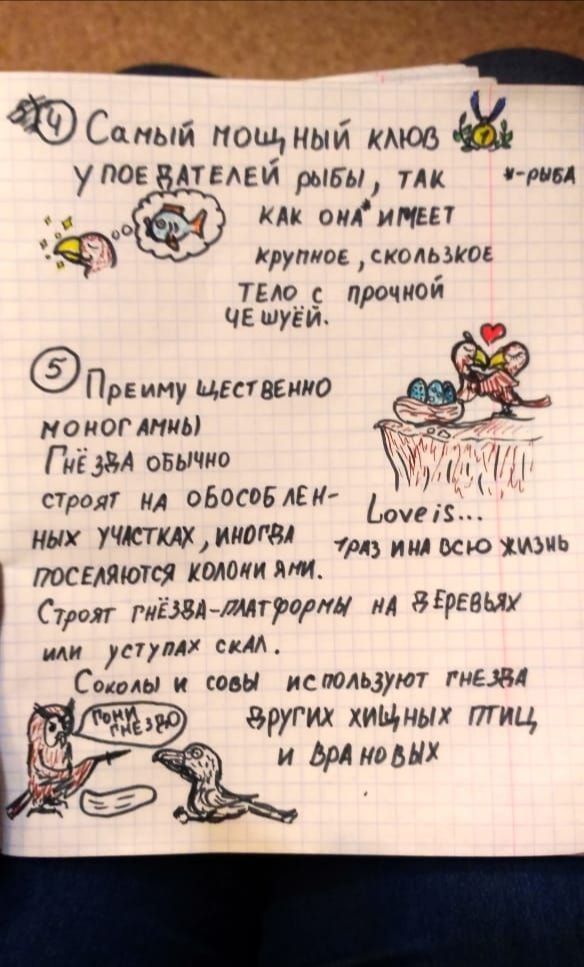 4 Самый мощный клюв
1
у поедателей рыбы, так
*-рыба
как она* имеет
крупное, скользкое
тело с прочной
чешуёй.
5 Преимущественно
моногамны
Гнёзда обычно
строят на обособлен-
ных участках, иногда
поселяются колониями.
Love is...
1 раз и на всю жизнь
Строят гнёзда-платформы на деревьях
или уступах скал.
Соколы и совы используют гнезда
других хищных птиц
и врановых
Гони
гнездо